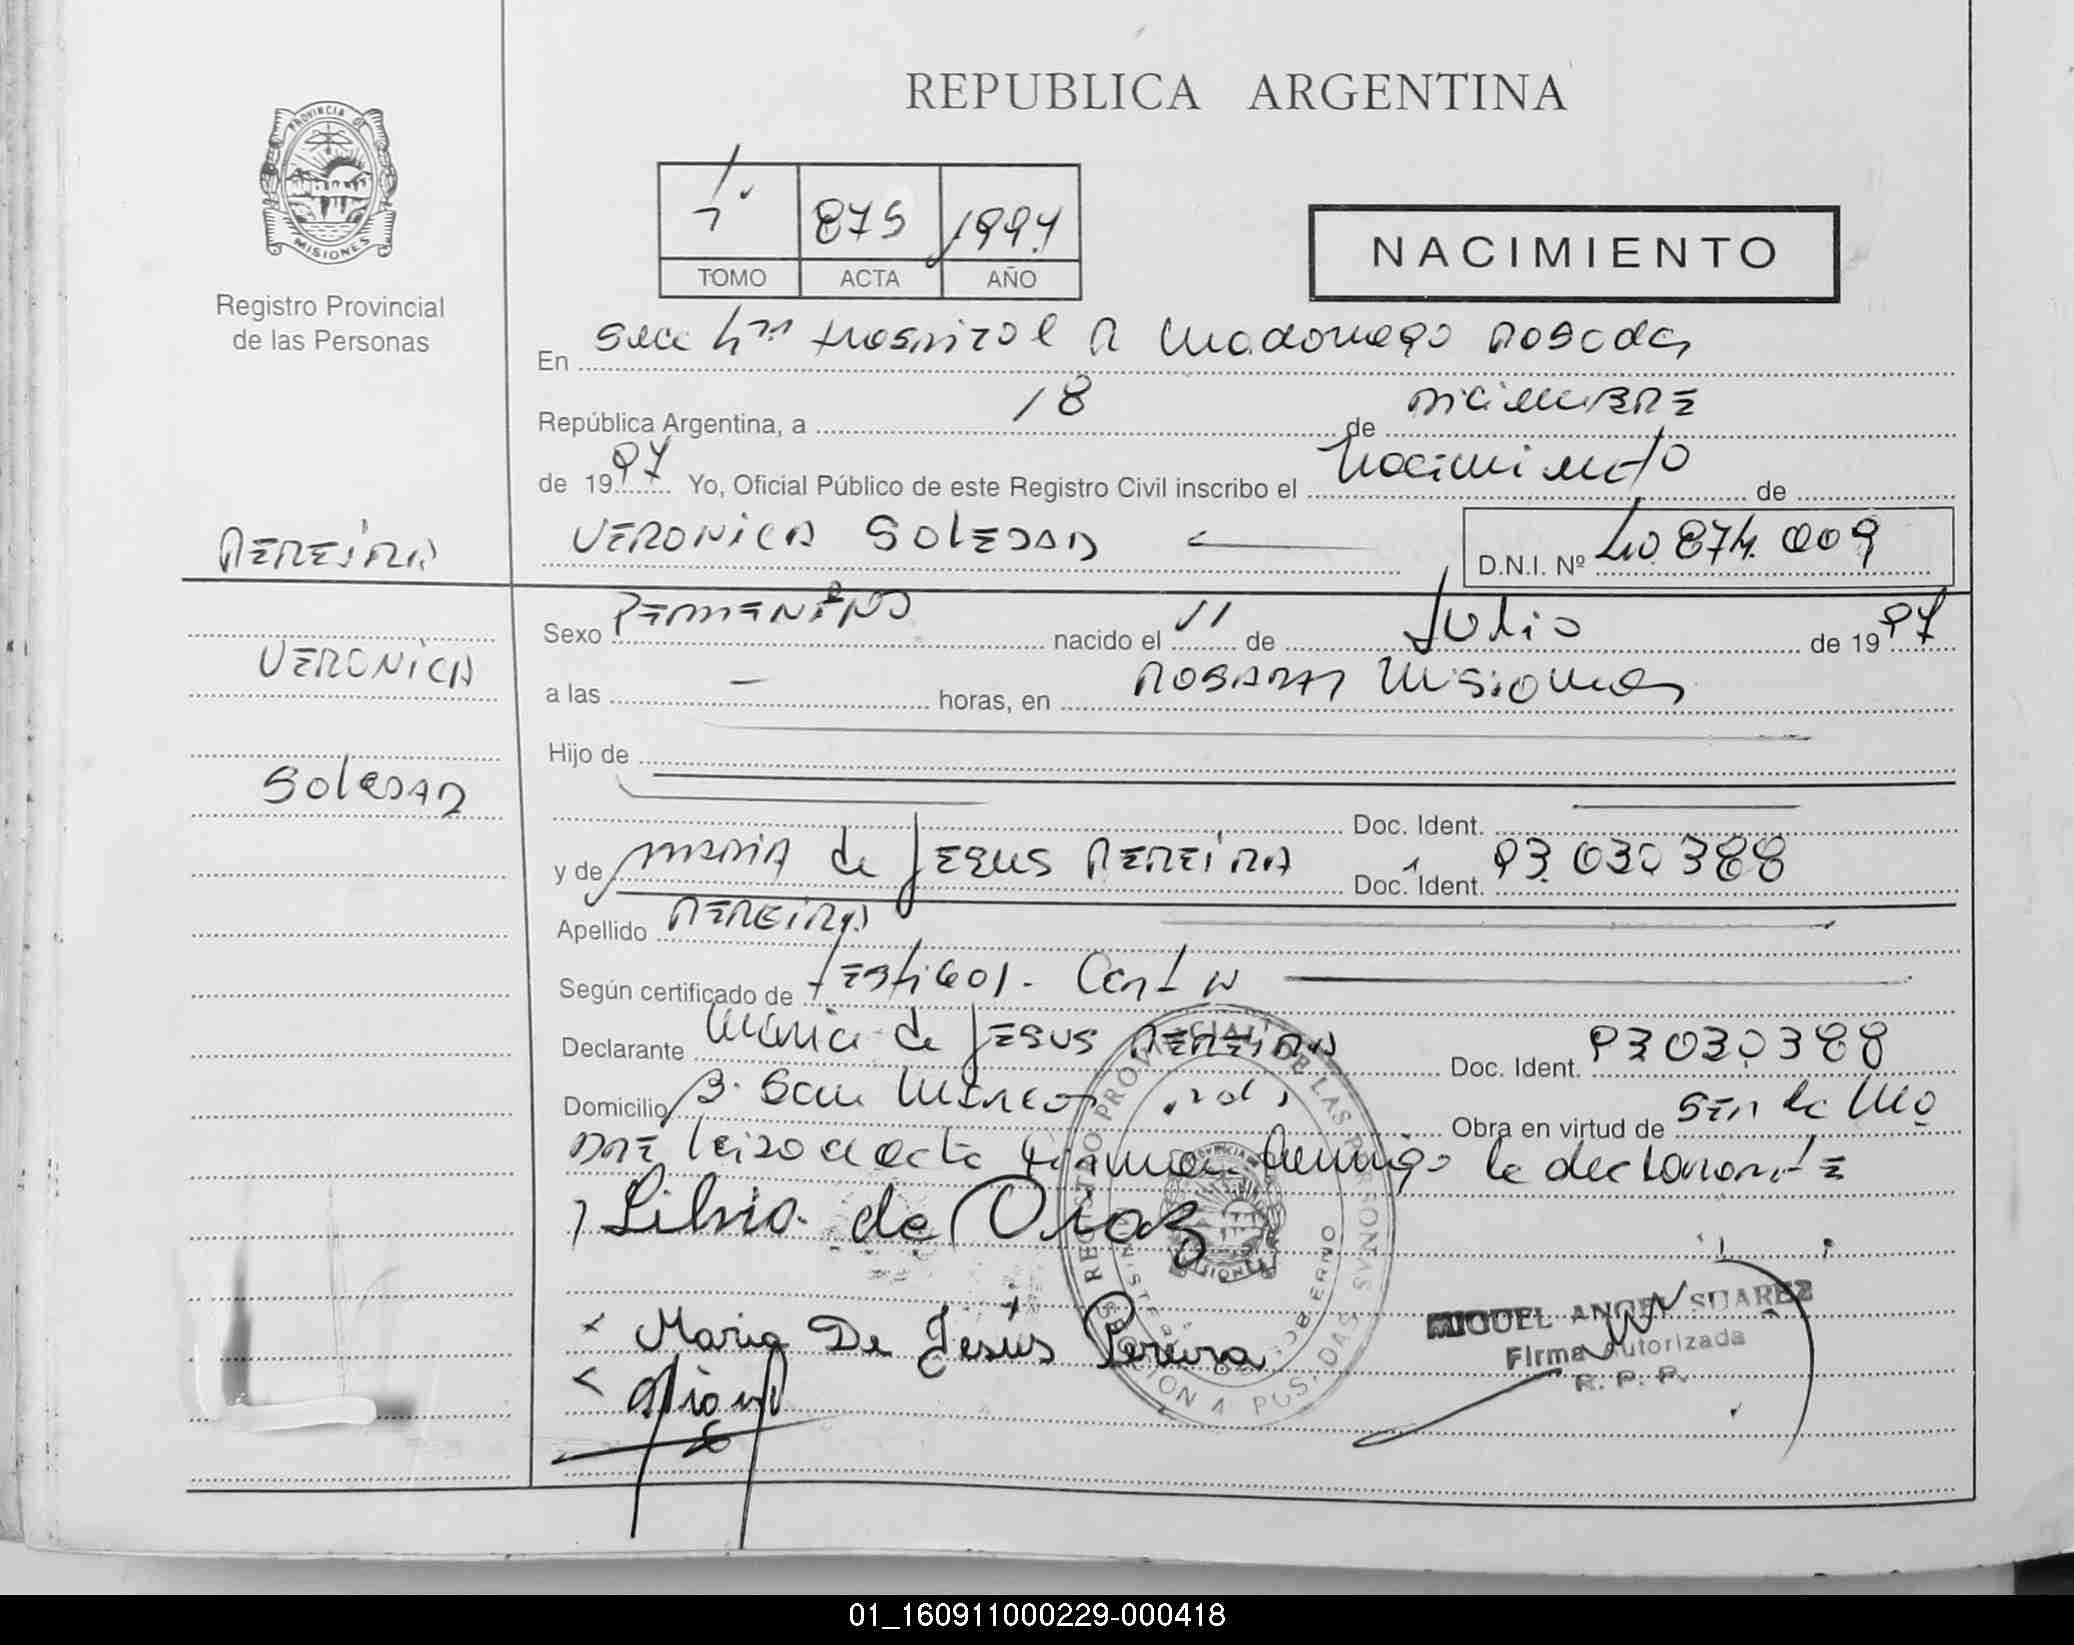 REPUBLICA ARGENTINA
PROVINCIA DE MISIONES
Registro Provincial
de las Personas
1º 875 1997
TOMO ACTA AÑO
NACIMIENTO
En Secc 4ta Hospital R Madariaga Posadas
República Argentina, a 18 de DICIEMBRE
de 1997 Yo, Oficial Público de este Registro Civil inscribo el Nacimiento de
PEREIRA
VERONICA SOLEDAD D.N.I. Nº 40.874.009
VERONICA
SOLEDAD
Sexo FEMENINO nacido el 11 de Julio de 1997
a las — horas, en POSADAS Misiones
Hijo de
Doc. Ident.
y de MARIA de JESUS PEREIRA Doc. Ident. 93.030.388
Apellido PEREIRA
Según certificado de TESTIGOS. Cert N
Declarante Maria de JESUS PEREIRA Doc. Ident. 93030388
Domicilio B. San Marcos Obra en virtud de SER la Ma
DRE leida el acta firman conmigo la declarante
Silvia de Diaz
Maria De Jesús Pereira
MIGUEL ANGEL SUAREZ
Firma Autorizada
R. P. P.
REGISTRO PROVINCIAL DE LAS PERSONAS
SECCION 4 POSADAS
01_160911000229-000418